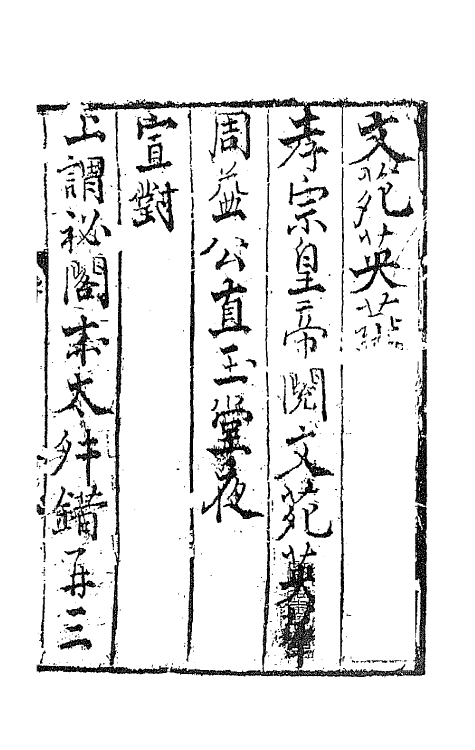 文苑英華
孝宗皇帝閱文苑英華
周益公直玉堂夜
宣對
上謂祕閣本太舛錯再三